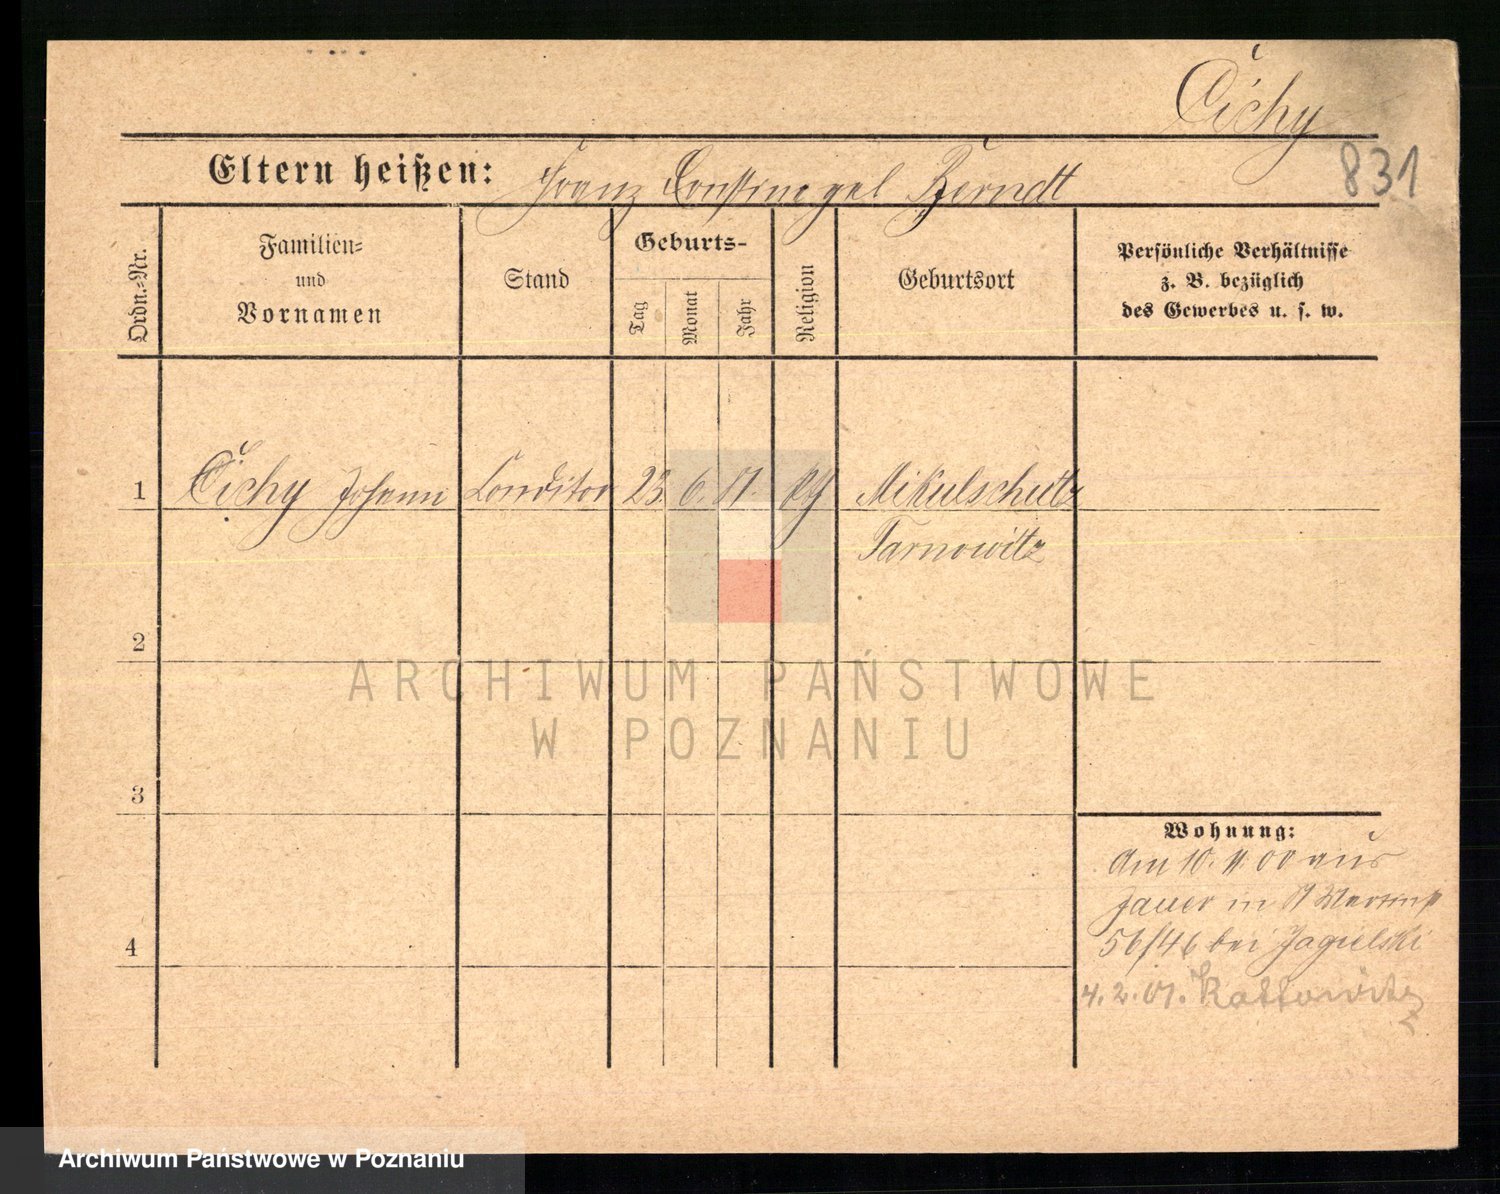 Cichy
831
Eltern heißen: Franz Berndt
Ordn.-Nr.
Familien-
und
Vornamen
Stand
Geburts-
Tag
Monat
Jahr
Religion
Geburtsort
Persönliche Verhältnisse
z. B. bezüglich
des Gewerbes u. s. w.
1 Cichy Johann Conditor 23. 6. 81 Mikulschütz
Tarnowitz
2
3
4
Wohnung:
Am 10. 11. 00 aus
Jauer in St Martinst
56/46 bei Jagielski
4. 2. 01. Kattowitz
ARCHIWUM PAŃSTWOWE
W POZNANIU
Archiwum Państwowe w Poznaniu